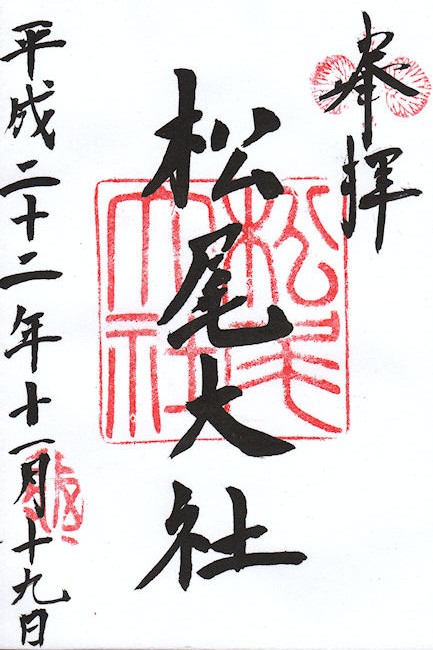 奉拝
松尾大社
松尾大社
平成二十二年十一月十九日